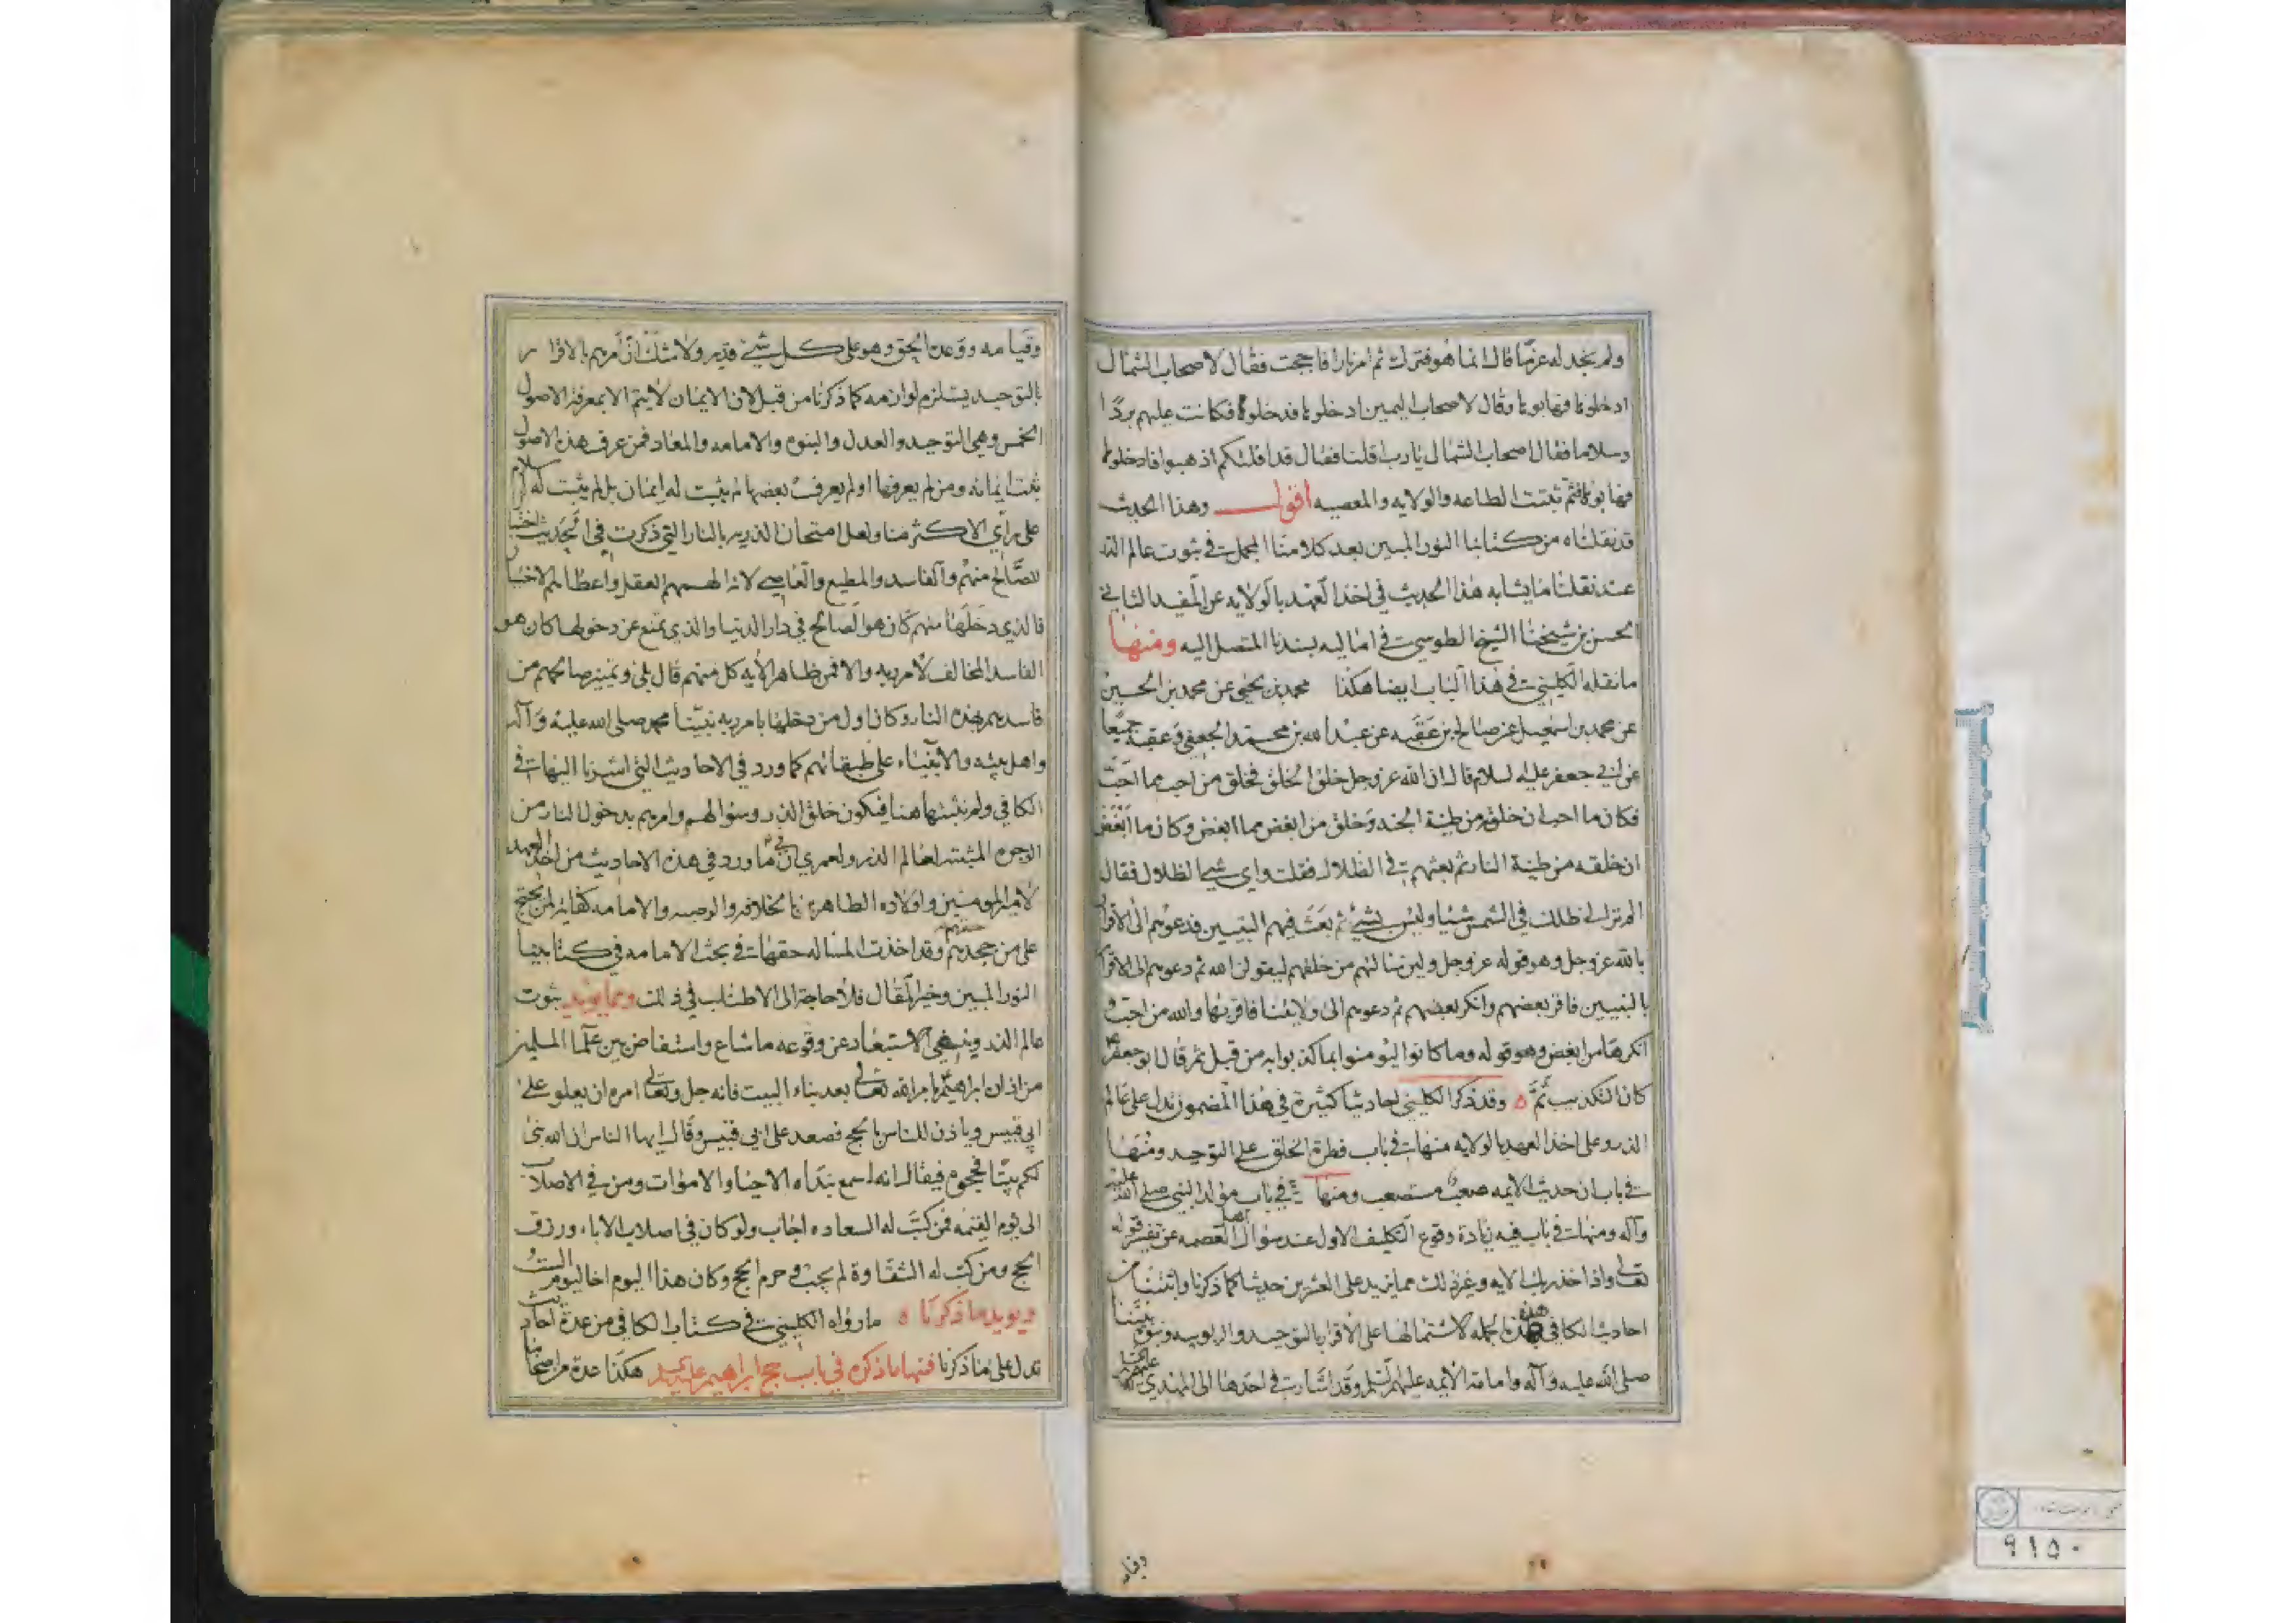 ولم يجد له عزما قال انما هو فترك ثم امر نارا فاججت فقال لاصحاب الشمال
ادخلوها فهابوها وقال لاصحاب اليمين ادخلوها فدخلوها فكانت عليهم بردا
وسلاما فقال اصحاب الشمال يا رب اقلنا فقال قد اقلتكم اذهبوا فادخلوها
فهابوها فثم ثبتت الطاعه والولايه والمعصيه اقول وهذا الحديث
قد نقلناه من كتابنا النور المبين بعد كلامنا المجمل في ثبوت عالم الذر
عند نقلنا ما يشابه هذا الحديث في اخذ العهد بالولايه عن المفيد الثاني
الحسن بن شيخنا الشيخ الطوسي في اماليه بسندنا المتصل اليه ومنها
ما نقله الكليني في هذا الباب ايضا هكذا محمد بن يحيى عن محمد بن الحسين
عن محمد بن اسمعيل عن صالح بن عقبه عن عبد الله بن محمد الجعفي وعقبه جميعا
عن ابي جعفر عليه السلام قال ان الله عز وجل خلق الخلق فخلق من احب مما احب
فكان ما احب ان خلقه من طينة الجنه وخلق من ابغض مما ابغض وكان ما ابغض
ان خلقه من طينة النار ثم بعثهم في الظلال فقلت واي شي الظلال فقال
الم تر الى ظلك في الشمس شيا وليس بشئ ثم بعث فيهم النبيين فدعوهم الى الاقرار
بالله عز وجل وهو قوله عز وجل ولئن سالتهم من خلقهم ليقولن الله ثم دعوهم الى الاقرار
بالنبيين فاقر بعضهم وانكر بعضهم ثم دعوهم الى ولايتنا فاقر بها والله من احب و
انكرها من ابغض وهو قوله وما كانوا ليؤمنوا بما كذبوا به من قبل ثم قال ابو جعفر
كان التكذيب ثم ه وقد ذكر الكليني احاديثا كثيرة في هذا المضمون تدل على عالم
الذر وعلى اخذ العهد بالولايه منها في باب فطرة الخلق على التوحيد ومنها
في باب ان حديث الايمه صعب مستصعب ومنها في باب مولد النبي صلى الله عليه
وآله ومنها في باب فيه زيادة وقوع التكليف الاول عند سؤال اهل العصمه عن تفسير قوله
تعالى واذ اخذ ربك الايه وغير ذلك مما يزيد على العشرين حديثا كما ذكرنا واثبتنا من
احاديث الكافي هذه الجمله لاشتمالها على الاقرار بالتوحيد والربوبيه ونبوه نبينا
صلى الله عليه وآله وامامة الايمه عليهم السلم وقد اشارت في احدها الى المهدي عليه السلم
وقيا
وقيامه ووعده الحق وهو على كل شئ قدير ولا شك ان امرهم بالاقرار
بالتوحيد يستلزم لوازمه كما ذكرنا من قبل لان الايمان لا يتم الا بمعرفة الاصول
الخمس وهي التوحيد والعدل والنبوه والامامه والمعاد فمن عرف هذه الاصول
ثبت ايمانه ومن لم يعرفها او لم يعرف بعضها لم يثبت له ايمان بل لم يثبت له اسلام
على رأي الاكثر منا ولعل امتحان الذريه بالنار التي ذكرت في الحديث اختبا
للصالح منهم والفاسد والمطيع والعاصي لانه الهمهم العقل واعطاهم الاختيار
فالذي دخلها منهم كان هو الصالح في دار الدنيا والذي تمنع عن دخولها كان هو
الفاسد المخالف لامر ربه والا فمن ظاهر الايه كل منهم قال بلى وتميز صالحهم من
فاسدهم بهذه النار وكان اول من دخلها بامر ربه نبينا محمد صلى الله عليه وآله
واهل بيته والانبياء على طبقاتهم كما ورد في الاحاديث التي اشرنا اليها في
الكافي ولم نثبتها هنا فيكون خلق الذر وسؤالهم وامرهم بدخول النار من
الوجوه المثبته لعالم الذر ولعمري ان في ما ورد في هذه الاحاديث من اخذ العهد
لامير المومنين واولاده الطاهرين بالخلافه والوصيه والامامه كفاية لمن يحتج
على من جحدهم حقهم وقد اخذت المساله حقها في بحث الامامه في كتابينا
النور المبين وخير المقال فلا حاجة الى الاطناب في ذلك ومما يويد ثبوت
عالم الذر وينفي الاستبعاد عن وقوعه ما شاع واستفاض بين علما المسلمين
من اذان ابراهيم بامر الله تعالى بعد بناء البيت فانه جل وتعالى امره ان يعلو على
ابي قبيس وياذن للناس بالحج فصعد على ابي قبيس وقال ايها الناس ان الله بنى
لكم بيتا فحجوه فيقال انه اسمع نداه الاحيا والاموات ومن في الاصلاب
الى يوم القيمه فمن كتب له السعاده اجاب ولو كان في اصلاب الاباء ورزق
الحج ومن كتب له الشقاوة لم يجب وحرم الحج وكان هذا اليوم اخا ليوم الست
ويويد ما ذكرنا ه ما رواه الكليني في كتاب الكافي من عدة احاديث
تدل على ما ذكرنا فمنها ما ذكره في باب حج ابراهيم هكذا عدة من اصحابنا
٩١٥٠